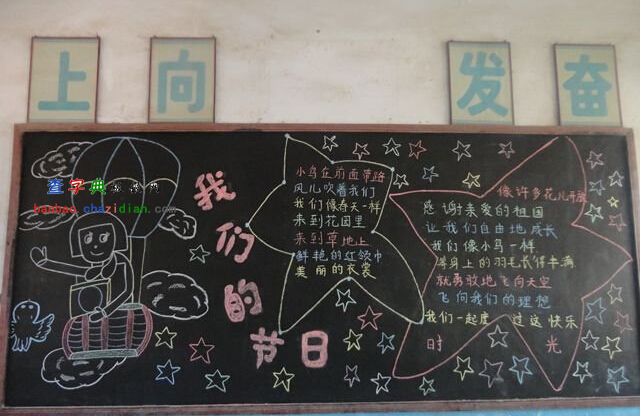 上 向 发 奋
查字典
banbao.chazidian.com
我们的节日
小鸟在前面带路
风儿吹着我们
我们像春天一样
来到花园里
来到草地上
鲜艳的红领巾
美丽的衣裳
像许多花儿开放
感谢亲爱的祖国
让我们自由地成长
我们像小鸟一样
等身上的羽毛长得丰满
就勇敢地飞向天空
飞向我们的理想
我们一起度过这快乐
时光